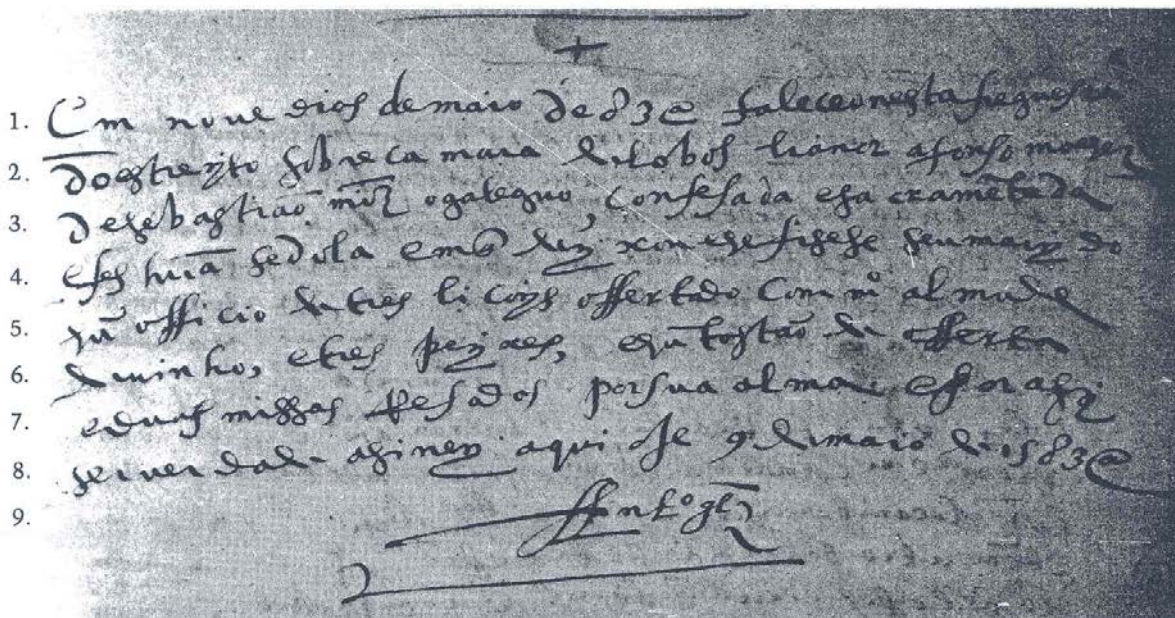 +
1. Em nove dias de maio de 83 @ faleceo nesta freguesia
2. do estreyto sobre camara de lobos lianor afonso molher
3. de sebastião miz o galeguo, confesada e sacramẽtada
4. e fes huã sedola em que se fisese seu marydo
5. hũ officio de tres licoys offertado com mº almude
6. de vinho, e tres peixes, e hũ tostão de offerta
7. e duas missas resadas por sua alma e por asy
8. ser verdade asiney aqui oje 9 de maio de 1583 @
9. glz